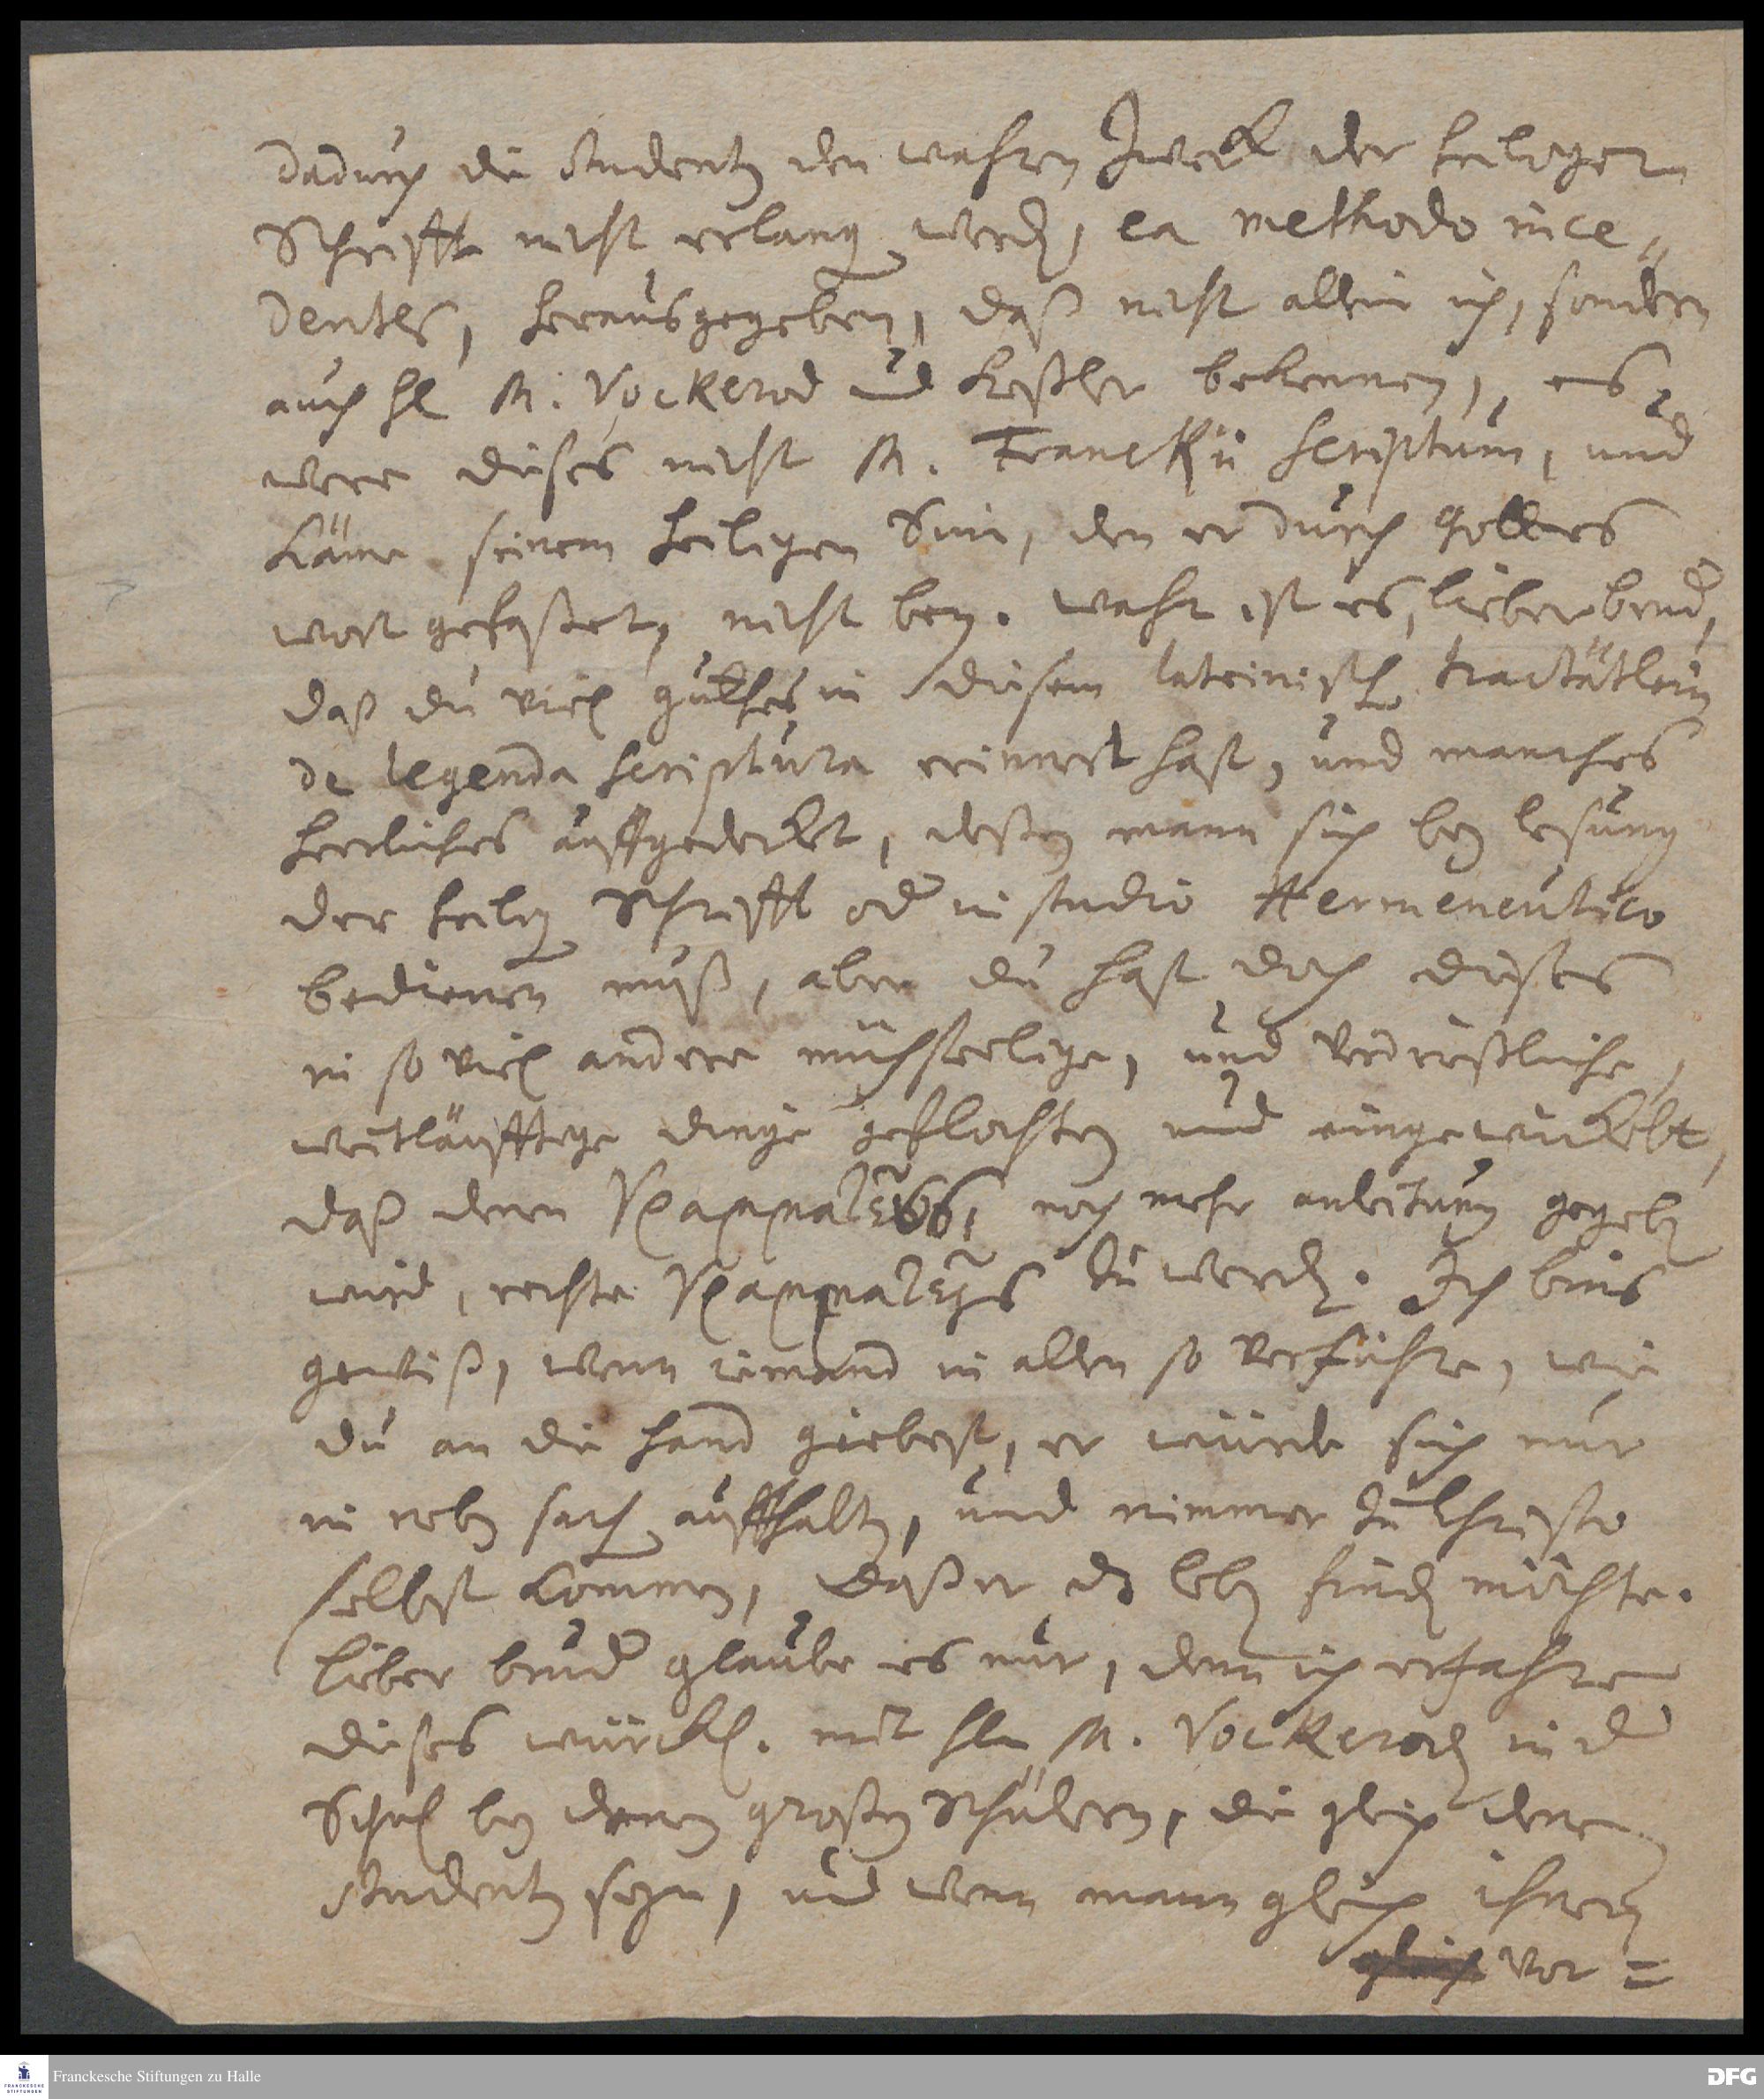 dadurch die Studenten den wahren Zweck der heiligen
Schrifft nicht erlang. werden, ea methodo ince„
dentes, herausgegeben, daß nicht allein ich, sondern
auch H. M. Vockerod und Keßler bekennen, es
were dieses nicht M. Franckii scriptum, und
käme seinem heiligen Sinn, den er durch Gottes
wort gefaßet, nicht bey. Wahr ist es, lieber brud,
daß du viel guthes in diesem lateinisch. tractätlein
de legenda scriptura erinnert hast, und manches
herrliches auffgedeckt, deßen mann sich bey lesung
der heilig. Schrifft od in studio Hermeneutico
bedienen muß, aber du hast doch dieses
in so viel andere mühseelige, und verdrießliche,
weitläufftige dinge geflochten und eingewickelt,
daß denen noch mehr anleitung gegeben
wird, rechte zu werden. Ich bins
gewiß, wenn iemand in allen so verführe, wie
du an die hand giebest, er würde sich nur
in neben sach. auffhalten, und nimmer zu Christo
selbst kommen, daß er ds leben finden möchte.
Lieber brud glaube es nur, denn ich erfahre
dieses würckl. mit Hn M. Vockeroden in d
Schul bey denen großen Schülern, die gleich denen
Studenten seyn, und wenn mann gleich ihnen
vor =
Franckesche Stiftungen zu Halle
FRANCKESCHE
STIFTUNGEN
DFG